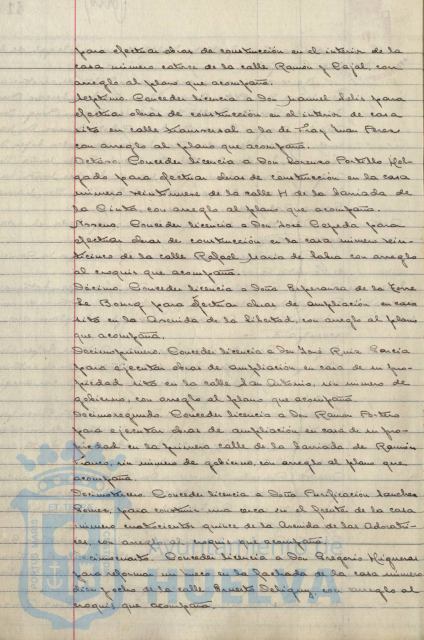 para efectuar obras de construcción en el interior de la
casa número catorce de la calle Ramón y Cajal, con
arreglo al plano que acompaña.
Séptimo. Conceder licencia a Don Manuel Solís para
efectuar obras de construcción en el interior de casa
sita en calle transversal a la de Fray Juan Pérez
con arreglo al plano que acompaña.
Octavo. Conceder licencia a Don Lorenzo Portillo Hol-
gado para efectuar obras de construcción en la casa
número veintinueve de la calle H de la barriada de
la Cinta, con arreglo al plano que acompaña.
Noveno. Conceder licencia a Don José Cepeda para
efectuar obras de construcción en la casa número vein-
ticinco de la calle Rafael María de Labra con arreglo
al croquis que acompaña.
Décimo. Conceder licencia a Doña Esperanza de la Torre
para efectuar obras de ampliación en casa
sita en la Avenida de la libertad, con arreglo al plano
que acompaña.
Decimoprimero. Conceder licencia a Don José Ruiz García
para ejecutar obras de ampliación en casa de su pro-
piedad sita en la calle San Antonio, sin número de
gobierno, con arreglo al plano que acompaña.
Decimosegundo. Conceder licencia a Don Ramón
para ejecutar obras de ampliación en casa de su pro-
piedad en la primera calle de la barriada de Ramón
Franco, sin número de gobierno, con arreglo al plano que
acompaña
Decimotercero. Conceder licencia a Doña Purificación Sánchez
Gómez, para construir una cerca en el frente de la casa
número cuatrocientos quince de la Avenida de las Adoratri-
ces, con arreglo al croquis que acompaña.
Decimocuarto. Conceder licencia a Don Gregorio Higueras
para reformar un hueco en la fachada de la casa número
dieciocho de la calle Ernesto Deligny, con arreglo al
croquis que acompaña.
HUELVA